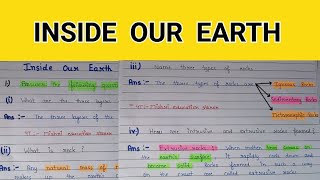 INSIDE OUR EARTH
Inside Our Earth
1) Answer the following questions
(i) What are the three layers
Ans :- The three layers of the
YT :- Mishal education store
(ii) What is rock?
Ans :- Any natural mass of
makes up the earth's
iii) Name three types of rocks
Ans :- The three types of rocks are
Igneous Rocks
Sedimentary Rocks
Metamorphic Rocks
YT :- Mishal education store
iv) How are Intrusive and extrusive rocks formed?
Ans :- Extrusive rocks :- When molten lava comes on
the earth's surface, it rapidly cools down and
become solid. Rocks formed in such a way
on the crust are called extrusive rocks.